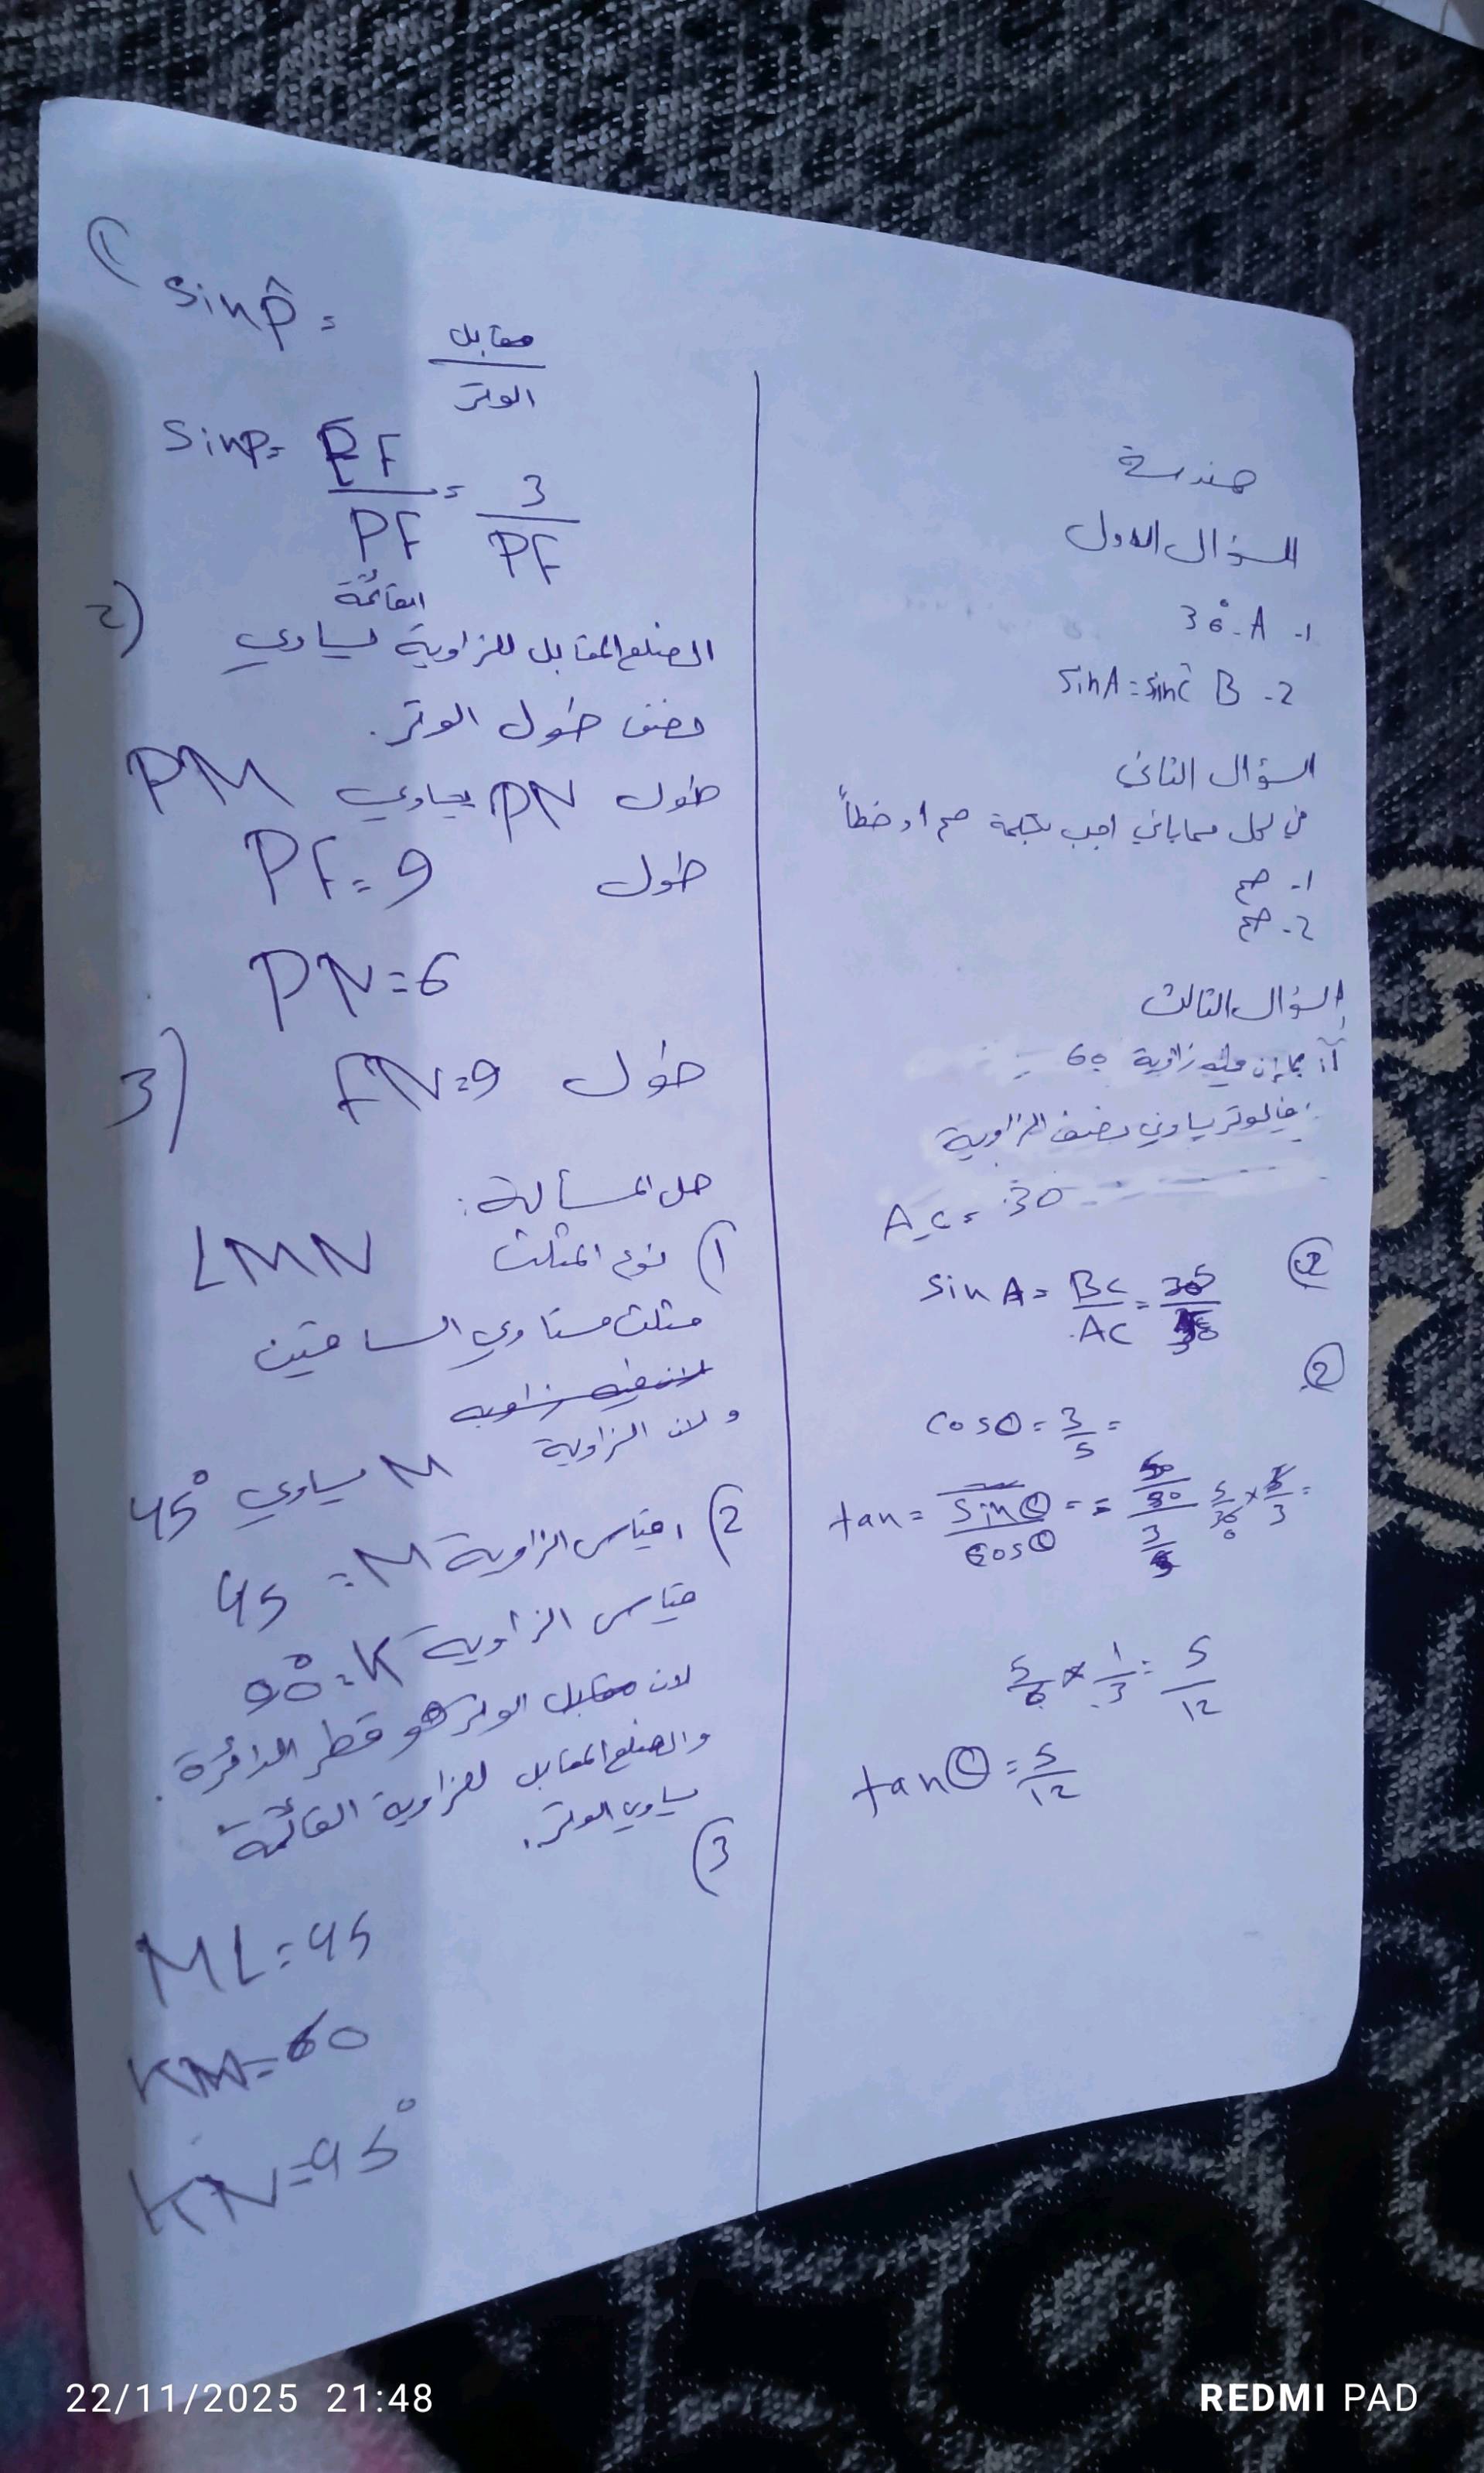 هندسة
السؤال الاول
1- A. 30°
2- B sinA = sinĈ
السؤال الثاني
في كل مما يأتي اجب بكلمة صح او خطأ
1- صح
2- صح
السؤال الثالث
فيه زاوية 60
يساوي نصف الزاوية
AC = 30
2
sin A = BC / AC =
2
cosΘ = 3/5 =
tan = sinΘ / cosΘ = =
5/6 × 1/3 = 5/12
tanΘ = 5/12
1)
sin P̂ = مقابل / الوتر
sin P = EF / PF = 3 / PF
2)
القائمة
الضلع المقابل للزاوية يساوي
نصف طول الوتر.
طول PN يساوي PM
طول PF = 9
PN = 6
3) طول FN = 9
حل المسألة:
1) نوع المثلث LMN
مثلث متساوي الساقين
لان فيه زاوية
و لان الزاوية
M يساوي 45°
2) قياس الزاوية M = 45
قياس الزاوية K = 90°
لان مقابل الوتر هو قطر الدائرة.
والضلع المقابل للزاوية القائمة
يساوي الوتر.
3)
ML = 45
KM = 60
KN = 45°
22/11/2025 21:48
REDMI PAD